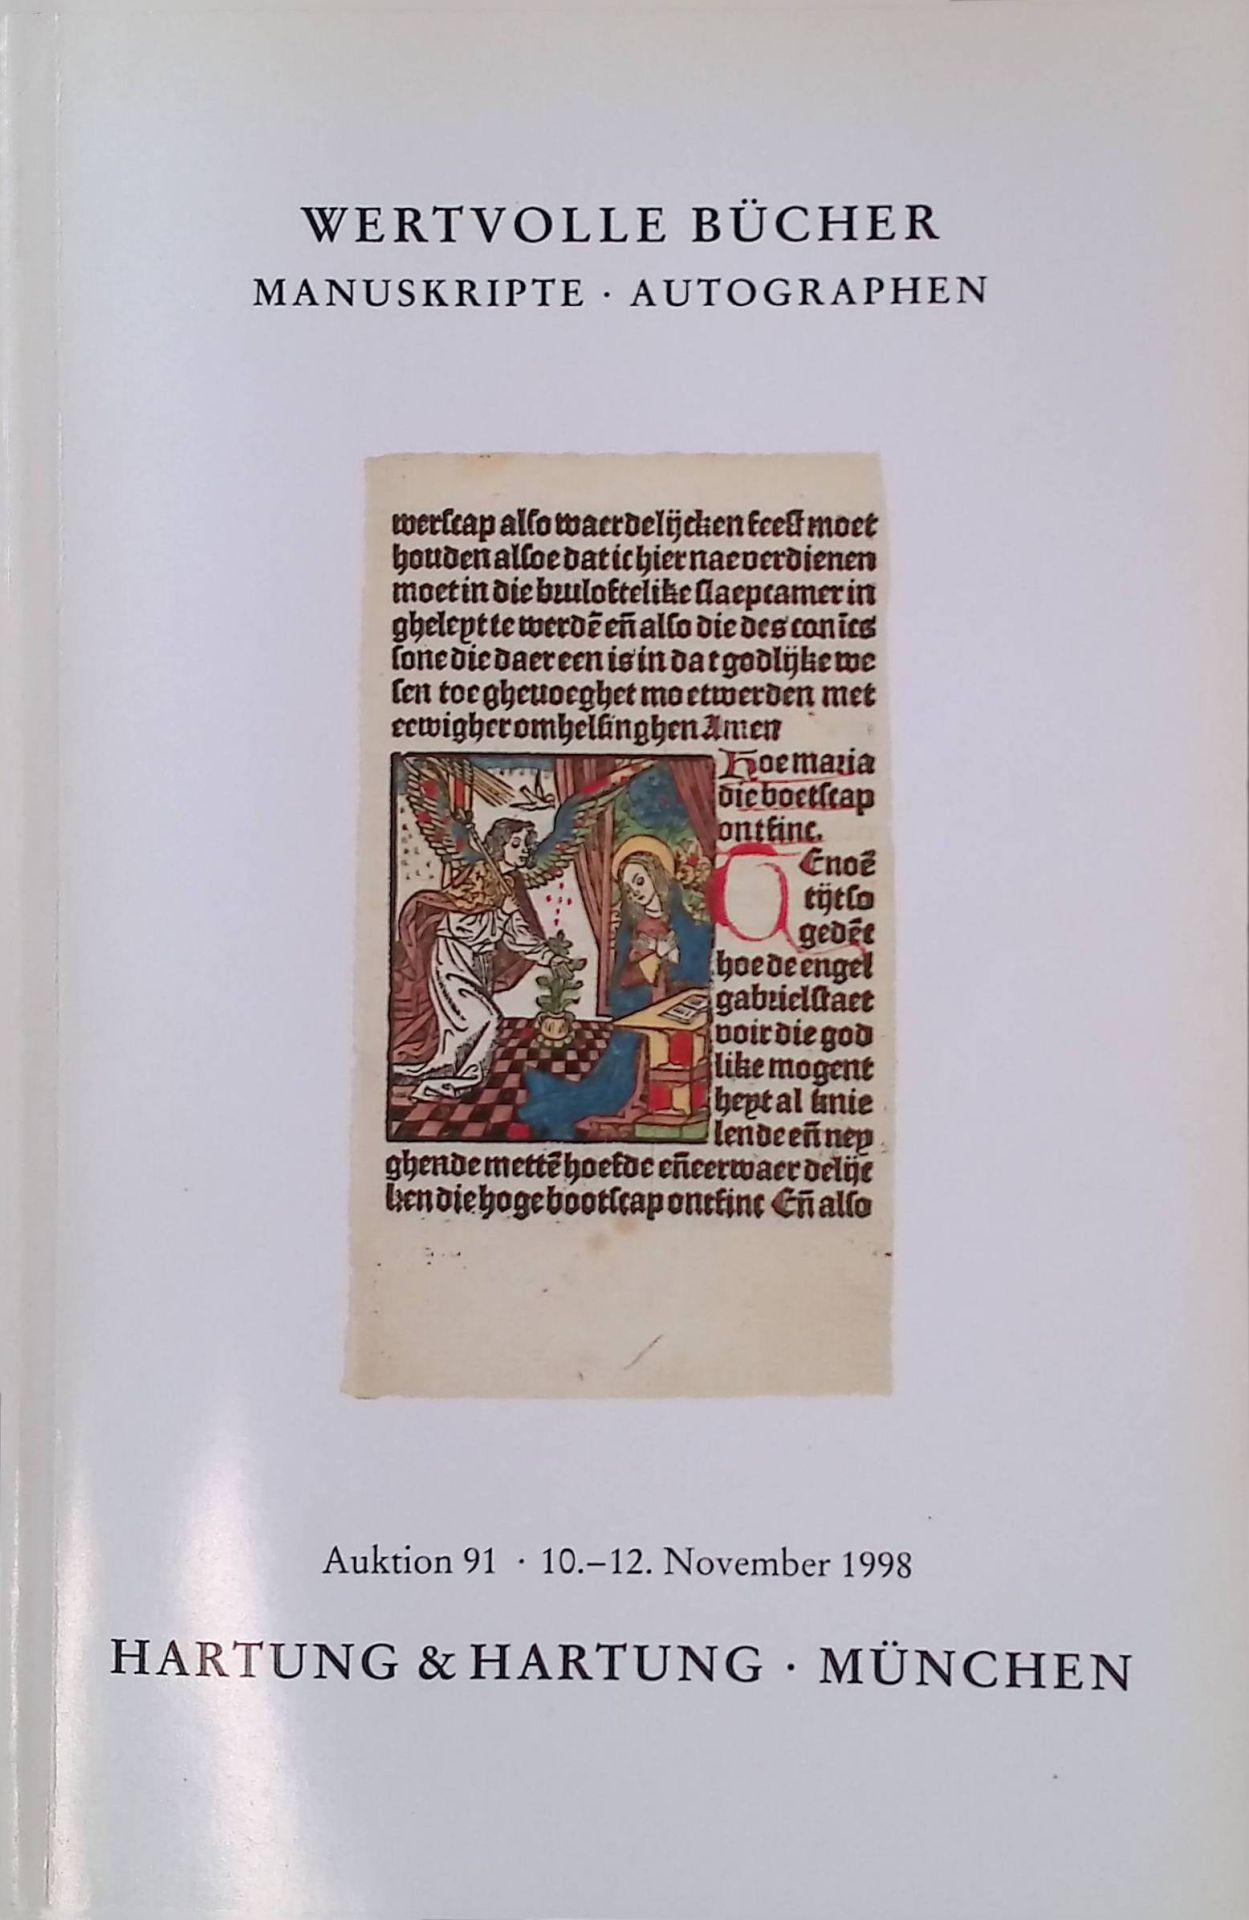 WERTVOLLE BÜCHER
MANUSKRIPTE · AUTOGRAPHEN
werscap also waerdelijcken feest moet
houden alsoe dat ic hier nae verdienen
moet in die bruloftelike slaepcamer in
gheleyt te werdē eñ also die des conīcs
sone die daer een is in dat godlijke we
sen toe gheuoeghet moet werden met
eewigher omhelsinghen Amen
Hoe maria
die boetscap
ontfinc.
Enoē
tijt so
gedēct
hoe de engel
gabriel staet
voir die god
like mogent
heyt al knie
lende eñ ney
ghende mettē hoefde eñ eerwaerdelijc
ken die hoge bootscap ontfinc Eñ also
Auktion 91 · 10.–12. November 1998
HARTUNG & HARTUNG · MÜNCHEN